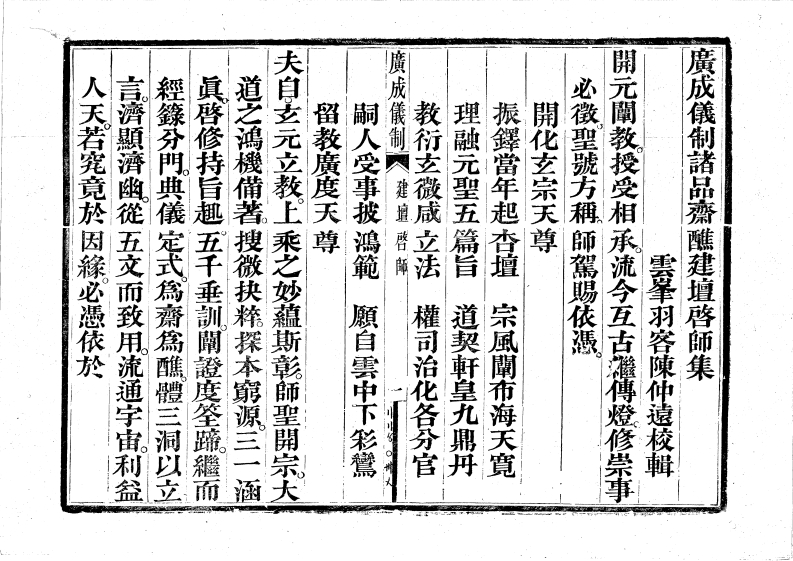 廣成儀制諸品齋醮建壇啓師集
雲峯羽客陳仲遠校輯
開元闡教。授受相承。流今互古。繼傳燈。修崇事
必徵。聖號方稱。師駕賜依憑。
開化玄宗天尊
振鐸當年起杏壇　宗風闡布海天寬
理融元聖五篇旨　道契軒皇九鼎丹
教衍玄微咸立法　權司治化各分官
廣成儀制　建壇啓師　一
嗣人受事披鴻範　願自雲中下彩鸞
留教廣度天尊
夫自。玄元立教。上乘之妙蘊斯彰。師聖開宗。大
道之鴻機備著。搜微抉粹。探本窮源。三一涵
眞。啓修持旨趣。五千垂訓。闡證度筌蹄。繼而
經籙分門。典儀定式。爲齋爲醮。體三洞以立
言。濟顯濟幽。從五文而致用。流通宇宙。利益
人天。若究竟於因緣。必憑依於